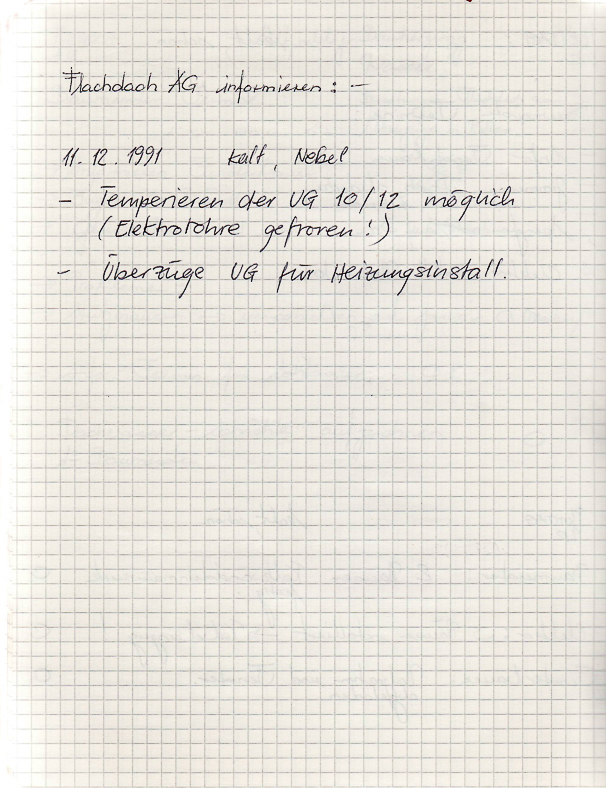 Flachdach AG informieren : –
11.12.1991 kalt, Nebel
– Temperieren der UG 10/12 möglich
(Elektrorohre gefroren!)
– Überzüge UG für Heizungsinstall.